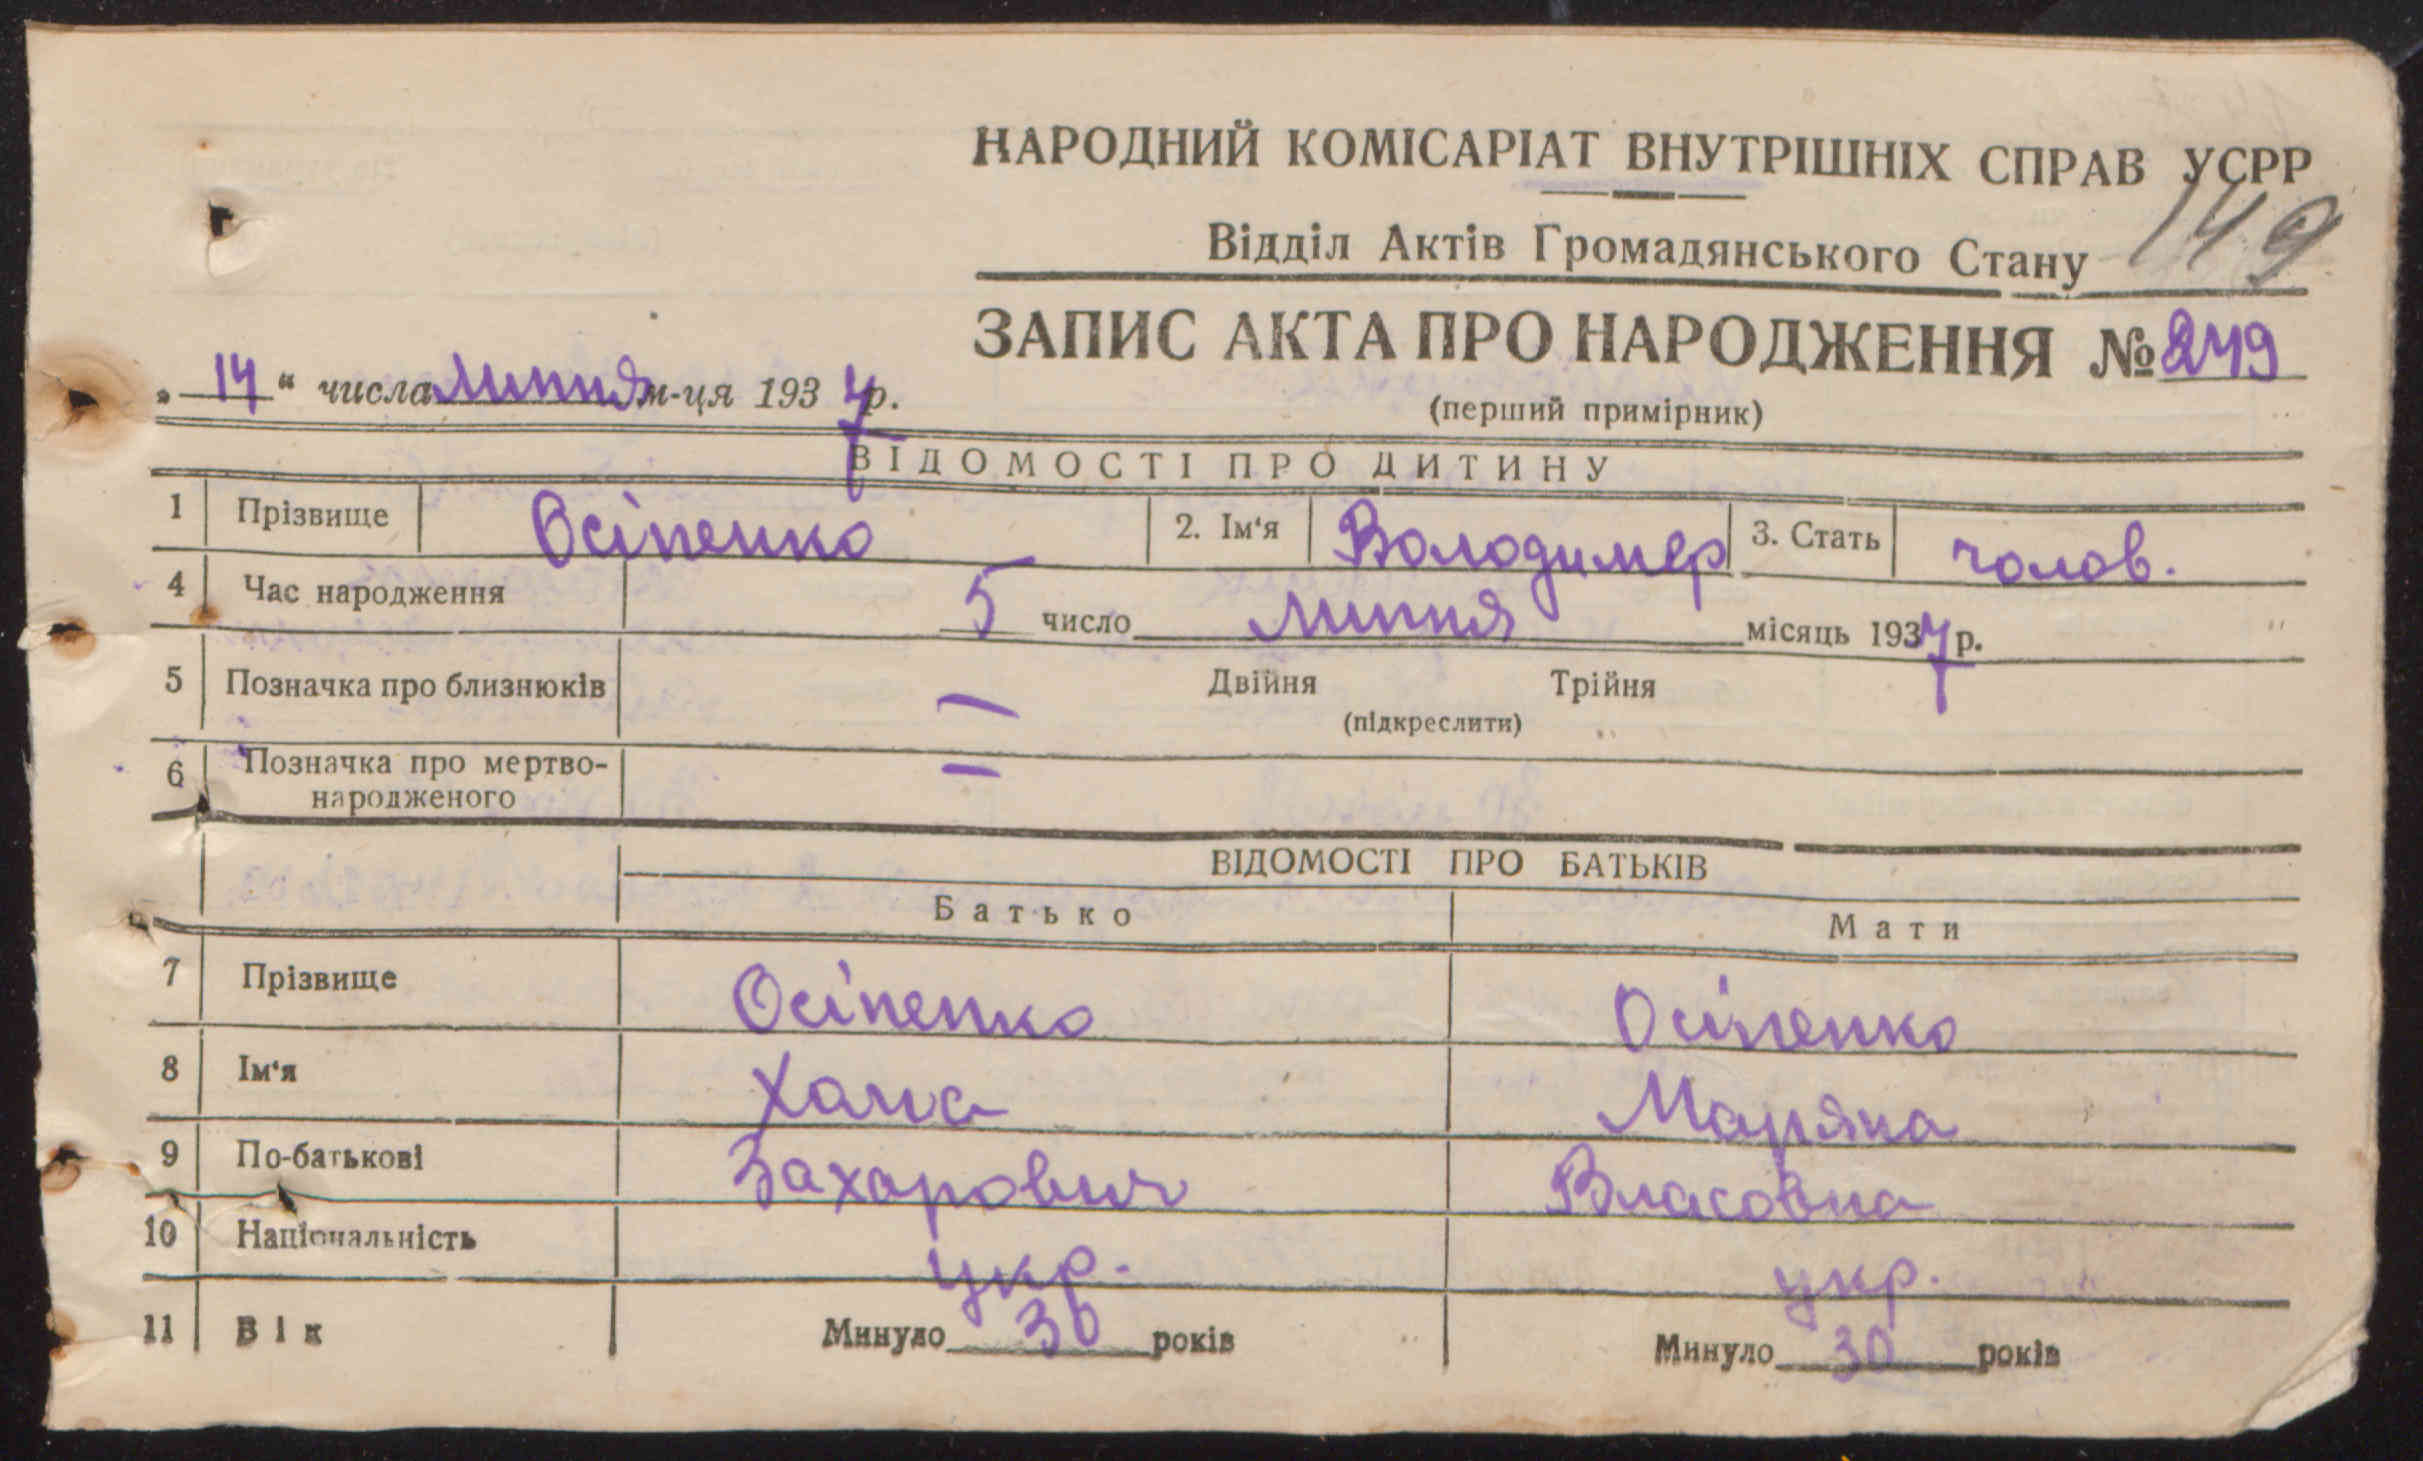 НАРОДНИЙ КОМІСАРІАТ ВНУТРІШНІХ СПРАВ УСРР
Відділ Актів Громадянського Стану
149
ЗАПИС АКТА ПРО НАРОДЖЕННЯ № 249
„ 14 “ числа липня м-ця 1937 р.
(перший примірник)
ВІДОМОСТІ ПРО ДИТИНУ
1 Прізвище Осіпенко 2. Ім‘я Володимер 3. Стать чолов.
4 Час народження 5 число липня місяць 1937 р.
5 Позначка про близнюків — Двійня Трійня
(підкреслити)
6 Позначка про мертво-
народженого —
ВІДОМОСТІ ПРО БАТЬКІВ
Батько Мати
7 Прізвище Осіпенко Осіпенко
8 Ім‘я Хома Маряна
9 По-батькові Захарович Власовна
10 Національність укр. укр.
11 Вік Минуло 30 років Минуло 30 років